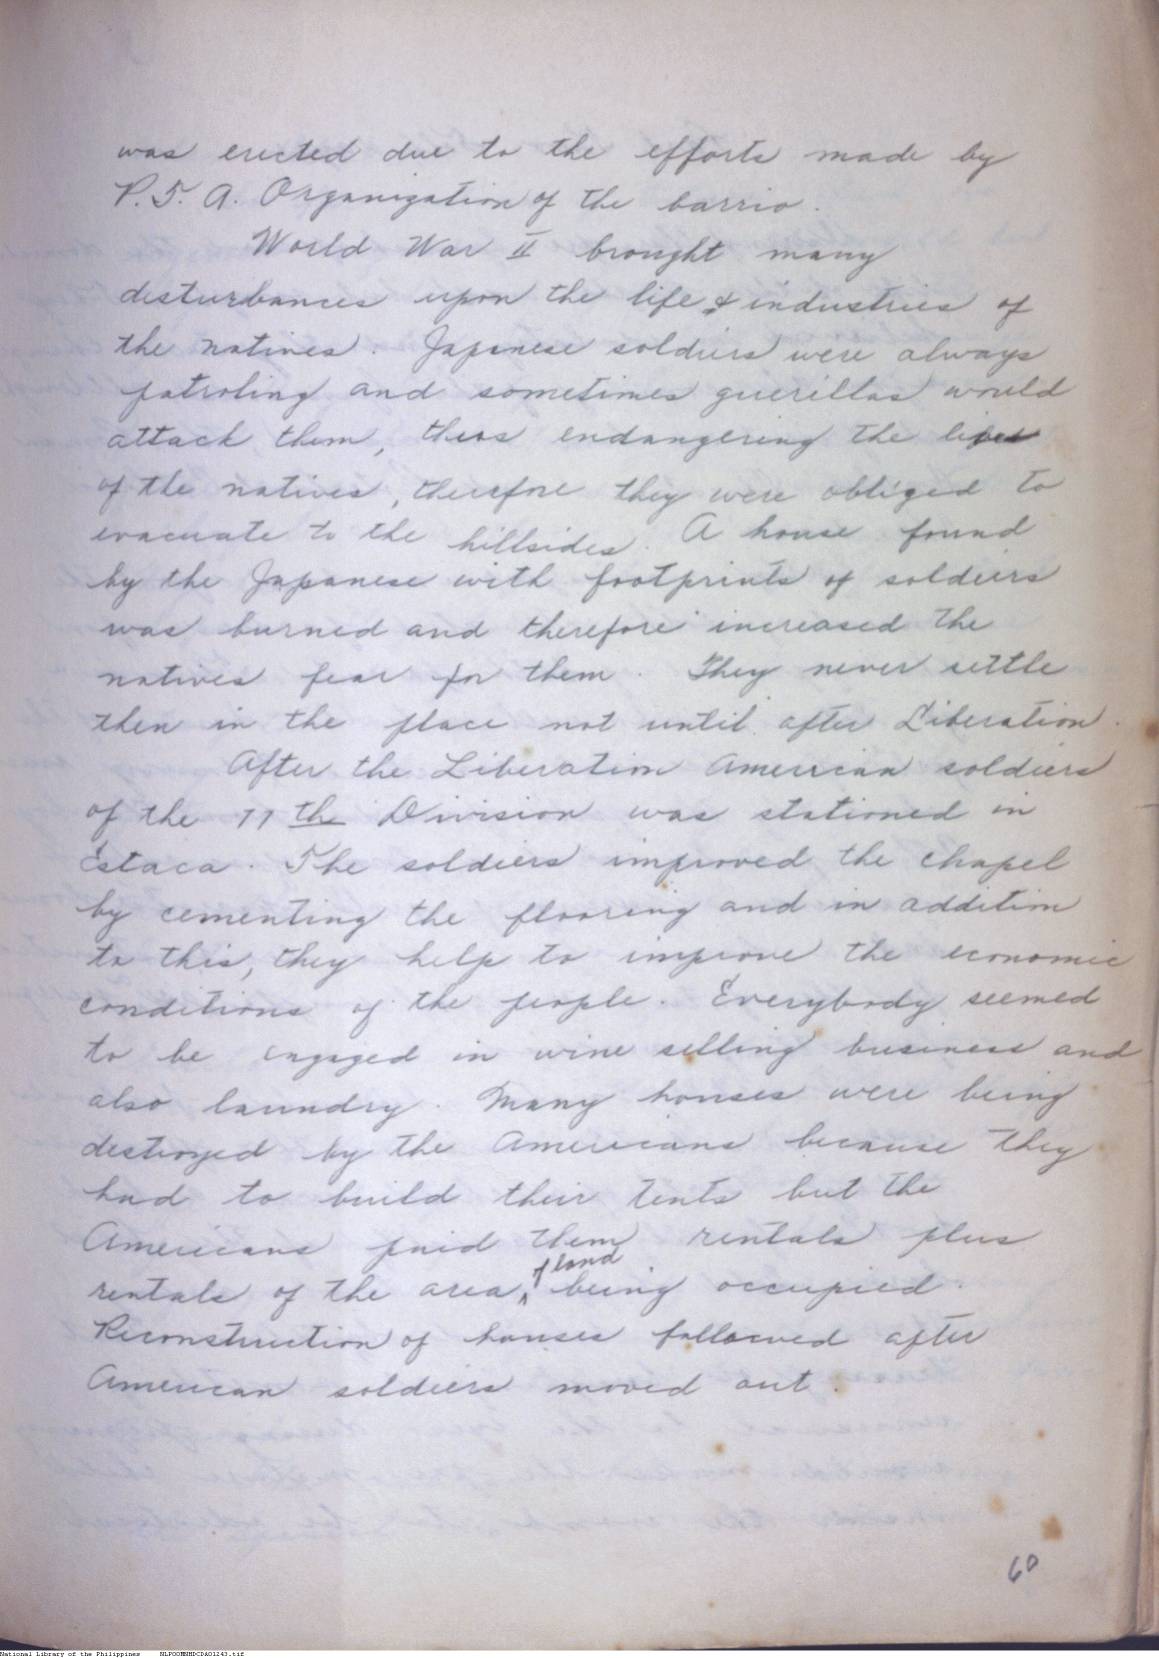 was erected due to the efforts made by
P. T. A. Organization of the barrio.
World War II brought many
disturbances upon the life & industries of
the natives. Japanese soldiers were always
patroling and sometimes guerillas would
attack them, thus endangering the lives
of the natives, therefore they were obliged to
evacuate to the hillsides. A house found
by the Japanese with footprints of soldiers
was burned and therefore increased the
natives fear for them. They never settle
then in the place not until after Liberation.
After the Liberation American soldiers
of the 77 th Division was stationed in
Estaca. The soldiers improved the chapel
by cementing the flooring and in addition
to this, they help to improve the economic
conditions of the people. Everybody seemed
to be engaged in wine selling business and
also laundry. Many houses were being
destroyed by the Americans because they
had to build their tents but the
Americans paid them rentals plus
rentals of the area, of land being occupied.
Reconstruction of houses followed after
American soldiers moved out.
60
National Library of the Philippines NLPOOMNHDCDA01243.tif